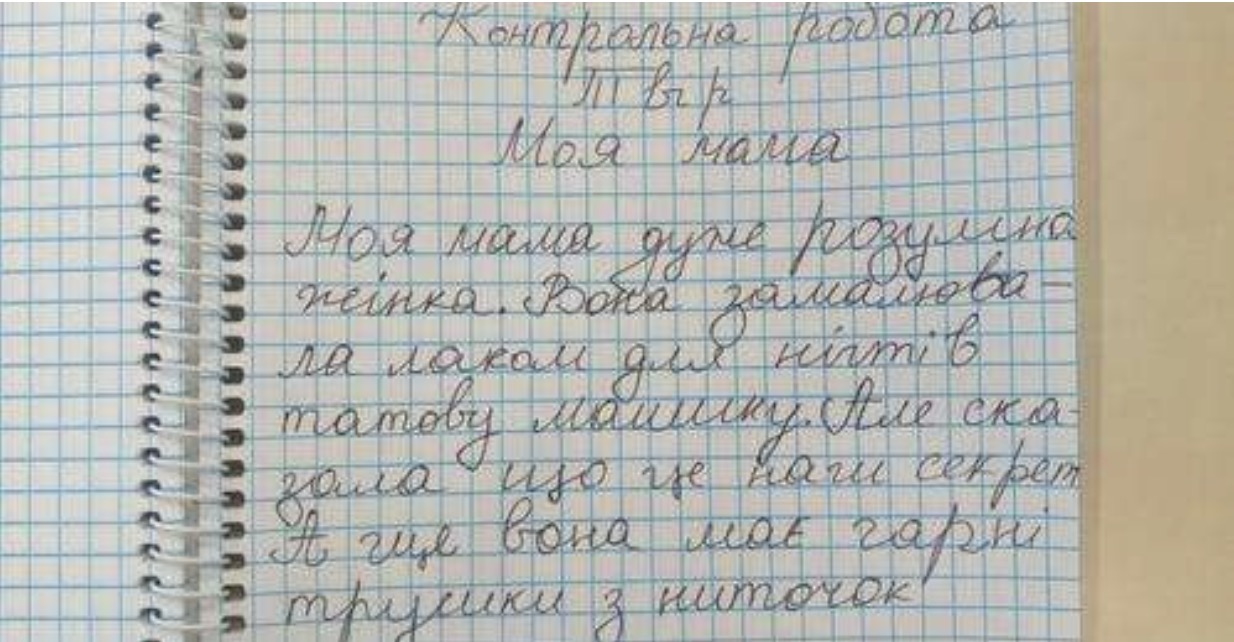 Контрольна робота
Твір
Моя мама
Моя мама дуже розумна
жінка. Вона замалюва-
ла лаком для нігтів
татову машину. Але ска-
зала що це наш секрет
А іще вона має гарні
трусики з ниточок